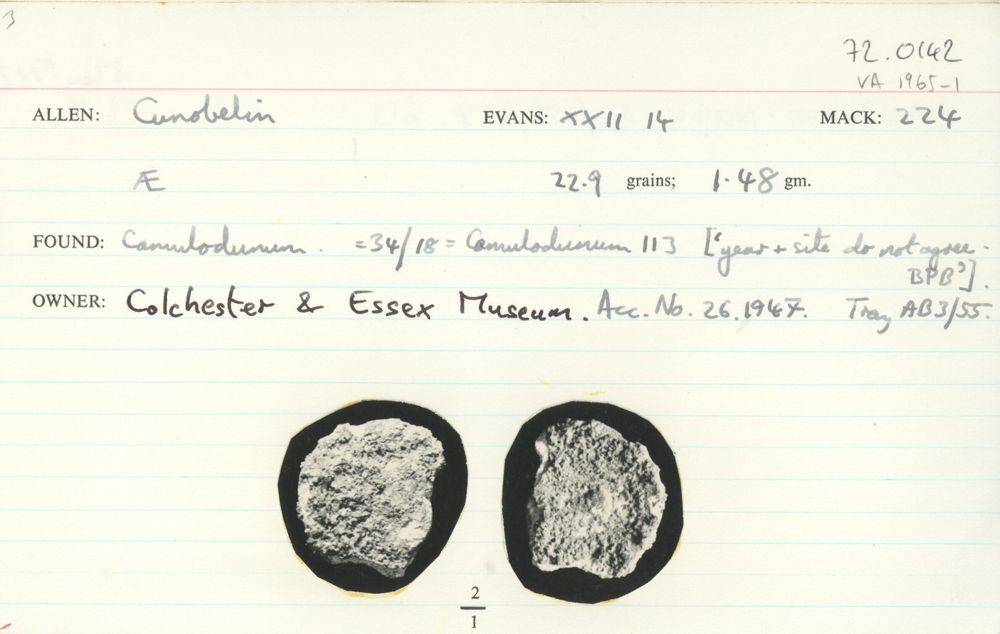 3
72.0142
VA 1965-1
ALLEN: Cunobelin EVANS: XXII 14 MACK: 224
Æ 22.9 grains; 1.48 gm.
FOUND: Camulodunum. =34/18 = Camulodunum 113 ['year + site do not agree -
BPB'].
OWNER: Colchester & Essex Museum. Acc. No. 26.1947. Tray AB3/55.
2
1